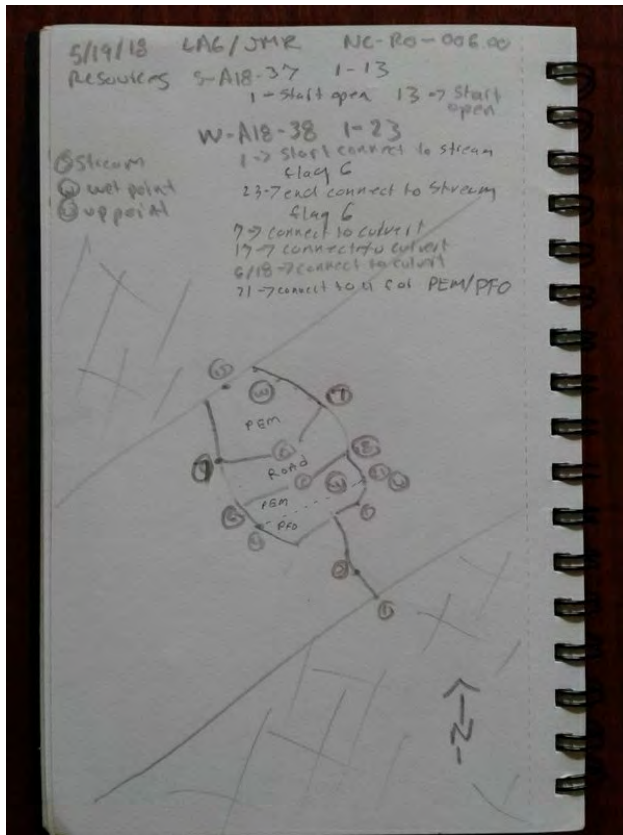 5/19/18 LAG/JMR NC-RO-006.00
Resources S-A18-37 1-13
1-Start open 13->Start open
W-A18-38 1-23
1-> Start connect to stream
flag 6
23->end connect to stream
flag 6
7->connect to culvert
17->connect to culvert
6/18->connect to culvert
21->connect to 4 for PEM/PFO
S stream
W wet point
U up point
U
W
17
PEM
7
ROAD
18
W
PEM
6
PFO
4
1
N